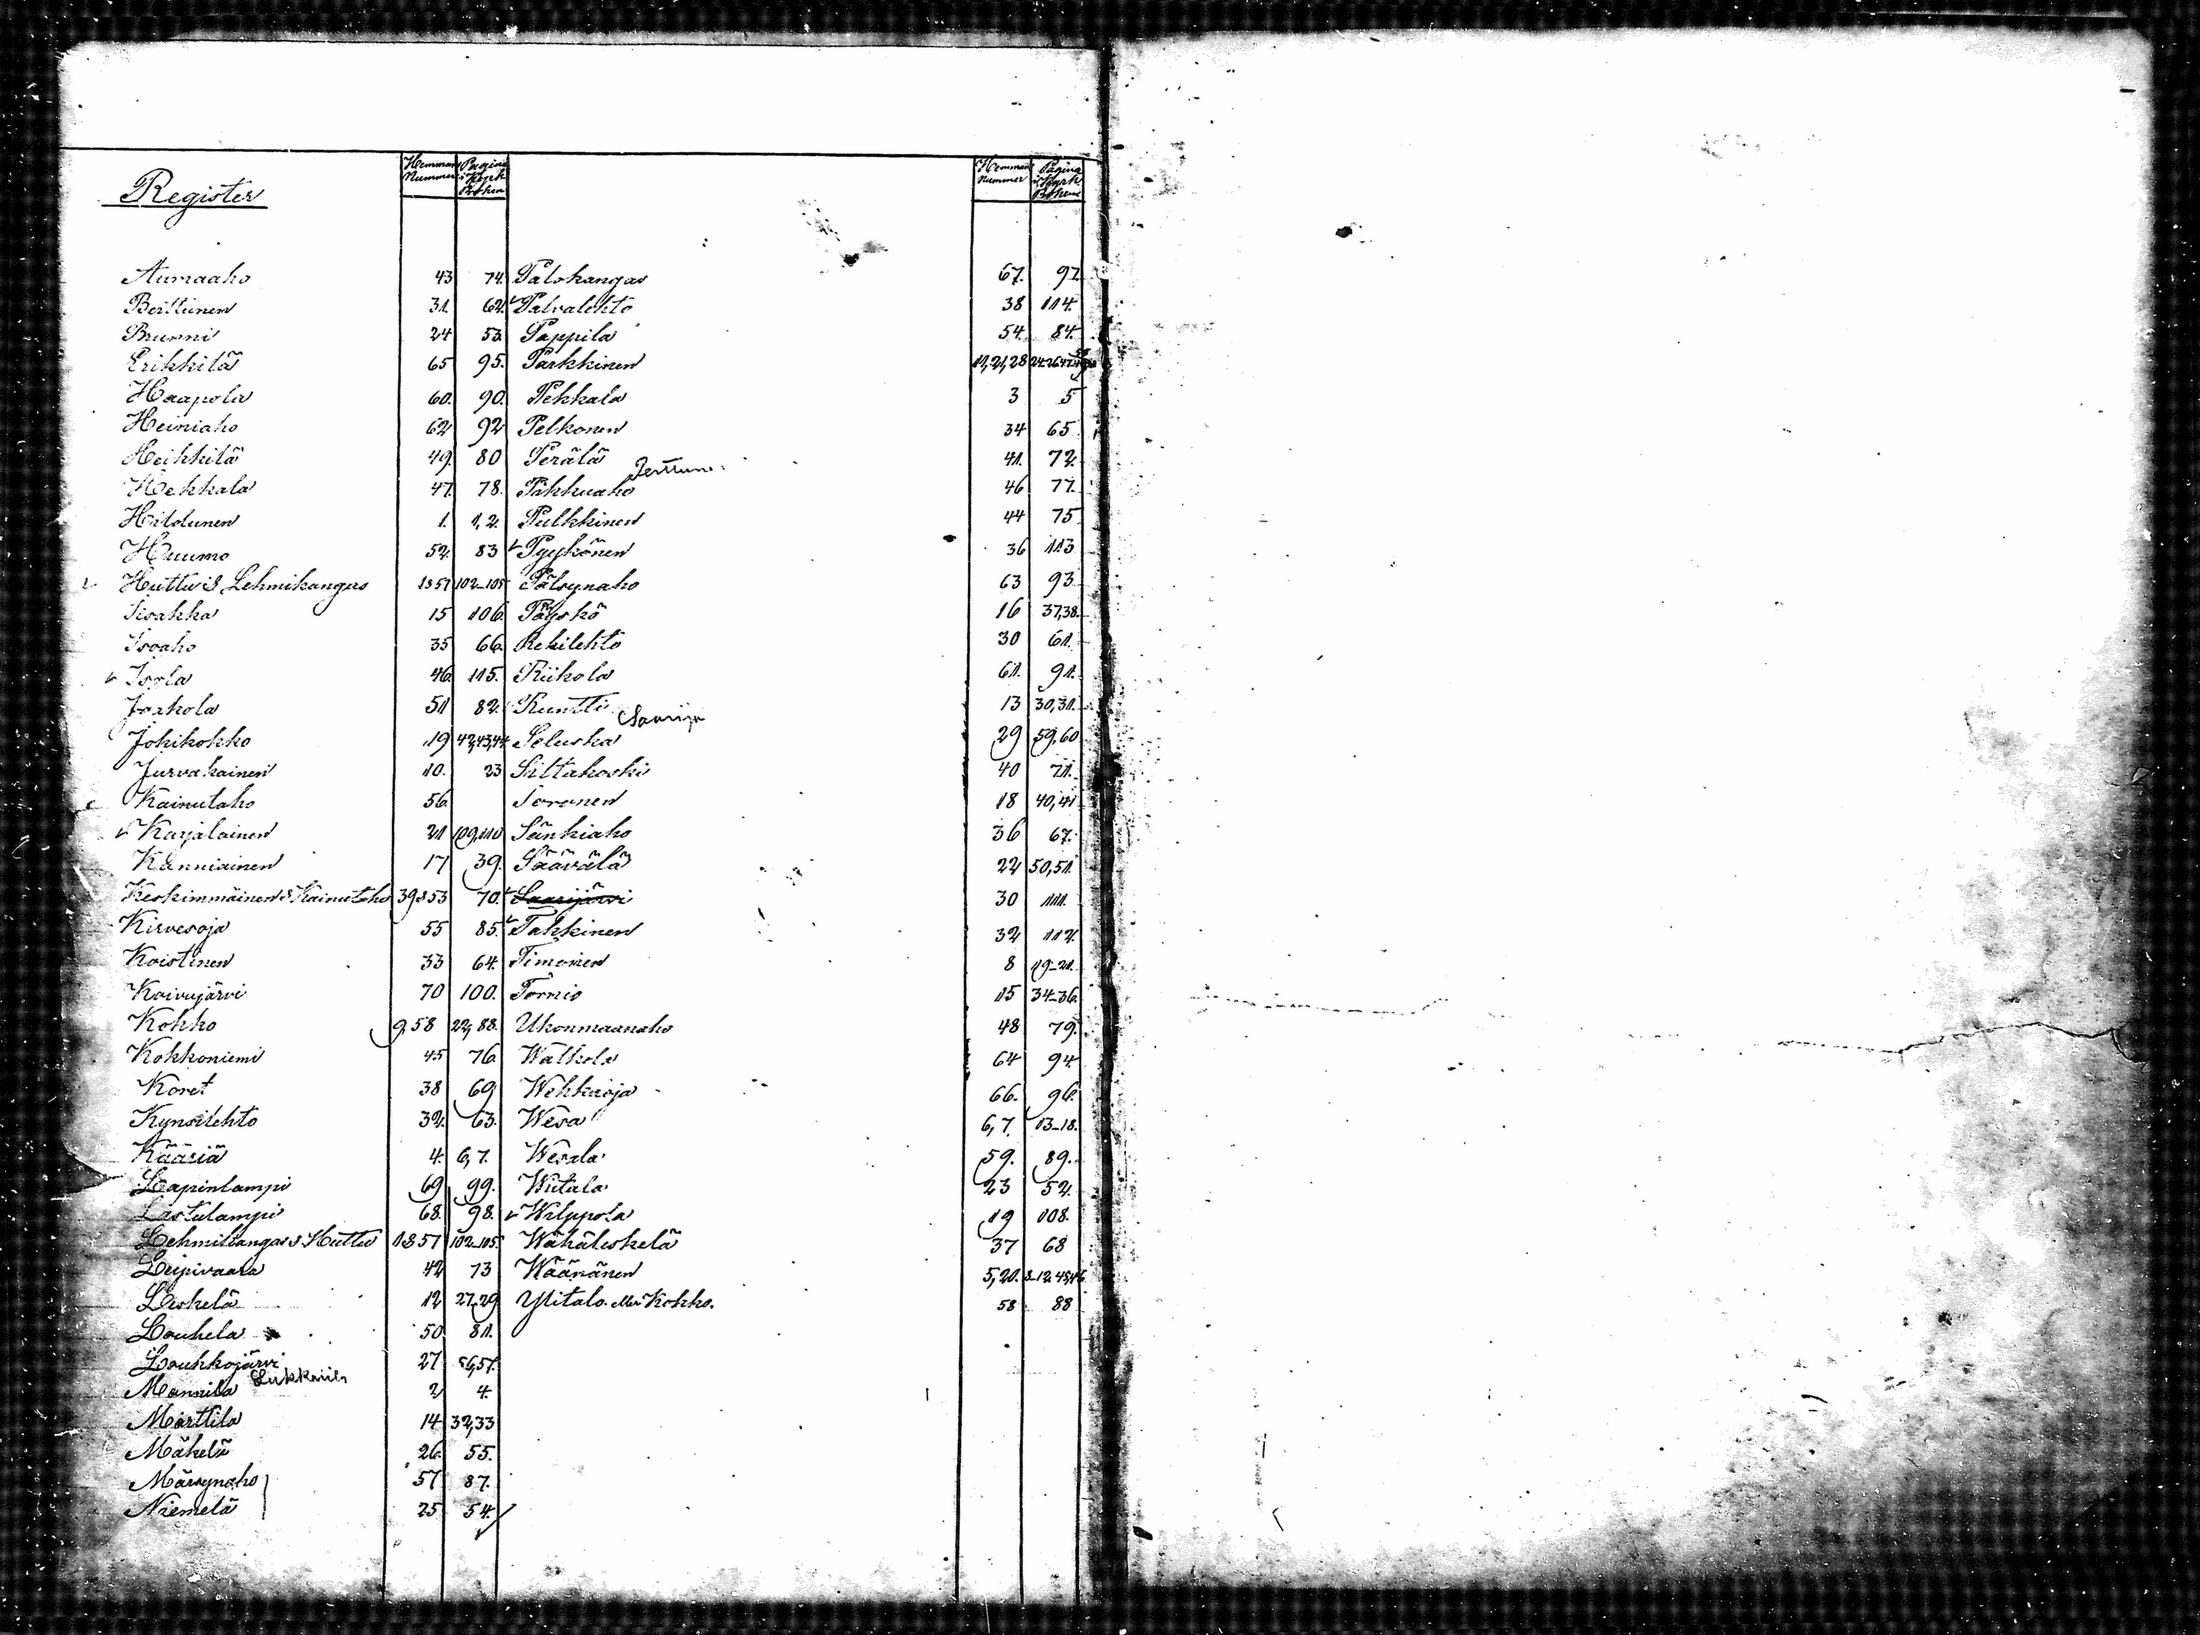 Register
Hemmans Nummer
Pagina i Kyrk Boken
Aumaaho 43 74.
Berttunen 31. 62.
Brunni 24 53.
Erikkilä 65 95.
Haapola 60. 90.
Heiniaho 62 92
Heikkilä 49. 80
Hekkala 47. 78.
Hiltolunen 1. 1, 2.
Huumo 52. 83
Huttu & Lehmikangas 1857 102-105
Iivakka 15 106.
Isoaho 35 66.
Isola 46 115.
Jaakola 51 82.
Jokikokko 19 42,43,44.
Jurvakainen 10. 23
Kainutaho 56
Karjalainen 21 109,110
Kanniainen 17 39.
Keskimmäinen & Kainutaho 39&53 70.
Kirvesoja 55 85.
Koistinen 33 64.
Koivujärvi 70 100.
Kokko 9,58 22, 88.
Kokkoniemi 45 76
Koret 38 69
Kynsilehto 32. 63.
Kääriä 4. 6, 7.
Lapinlampi 69 99.
Lastulampi 68. 98.
Lehmikangas & Huttu 1857 102-105.
Leipivaara 42 73
Leskelä 12 27,29
Louhela 50 81.
Louhkojärvi 27 56,57.
Mannila 2 4.
Marttila 14 32,33
Mäkelä 26. 55.
Märsynaho 57 87.
Niemelä 25 54.
Hemmans Nummer
Pagina i Kyrk Boken
Palokangas 67. 97.
Palvalehto 38 114.
Pappila 54. 84.
Parkkinen 11, 21, 28
Pekkala 3 5
Pelkonen 34 65.
Perälä 41. 72.
Pikkuaho 46 77.
Pulkkinen 44 75
Pyykönen 36 113
Pälsynaho 63 93
Päyskö 16 37,38.
Rekilehto 30 61.
Riihola 61. 91.
Runtti 13 30,31.
Seluska 29 59,60
Siltakoski 40 71.
Soronen 18 40,41
Sänkiaho 36 67.
Säävälä 22 50,51.
Saarijärvi 30 111.
Takkinen 32 112.
Timonen 8 19-21.
Tornio 15 34-36.
Ukonmaanaho 48 79.
Walkola 64 94.
Wehkaoja 66. 96.
Wesa 6, 7. 13-18.
Wesala 59. 89.
Wiitala 23 52.
Wilppola 19 108.
Wähäleskelä 37 68
Wäänänen 5, 20.
Ylitalo eller Kokko. 58 88